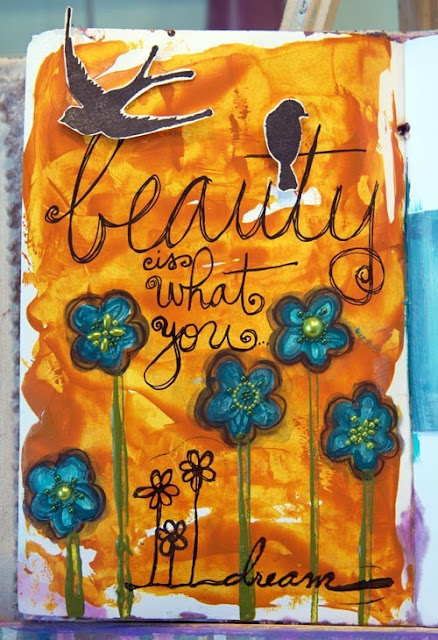 beauty
is
what
you...
dream